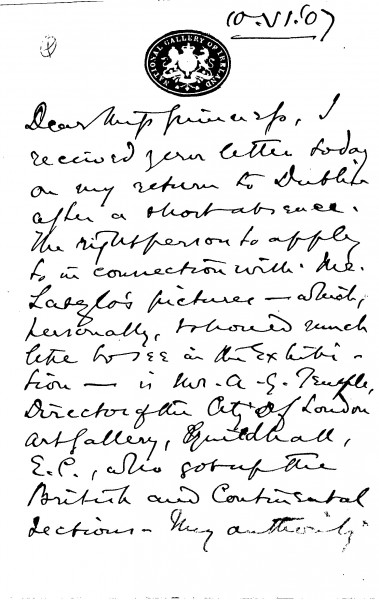 10.VI.07
NATIONAL GALLERY OF IRELAND
Dear Miss Guinness, I
received your letter today
on my return to Dublin
after a short absence.
The right person to apply
to in connection with Mr.
Laszlo's pictures – which,
personally, I should much
like to see in the Exhibi-
tion – is Mr. A. G. Temple,
Director of the City of London
Art Gallery, Guildhall,
E.C., who got up the
British and Continental
sections – My authority